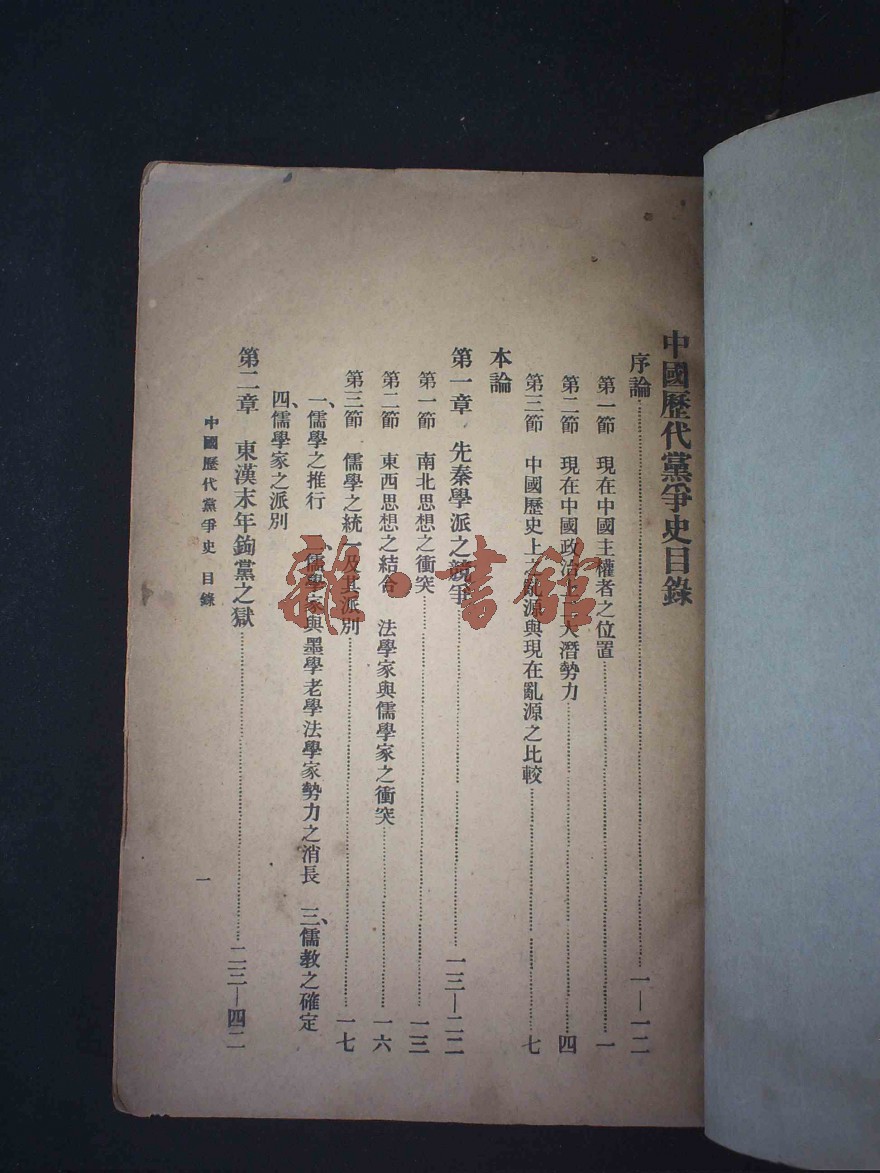 中國歷代黨爭史目錄
序論……一—一二
第一節 現在中國主權者之位置……一
第二節 現在中國政治上二大潛勢力……四
第三節 中國歷史上之亂源與現在亂源之比較……七
本論
第一章 先秦學派之競爭……一三—二二
第一節 南北思想之衝突……一三
第二節 東西思想之結合 法學家與儒學家之衝突……一六
第三節 儒學之統一及其派別……一七
一、儒學之推行 二、儒學家與墨學老學法學家勢力之消長 三、儒教之確定
四、儒學家之派別
第二章 東漢末年鉤黨之獄……二三—四二
中國歷代黨爭史 目錄
一
雜·書館